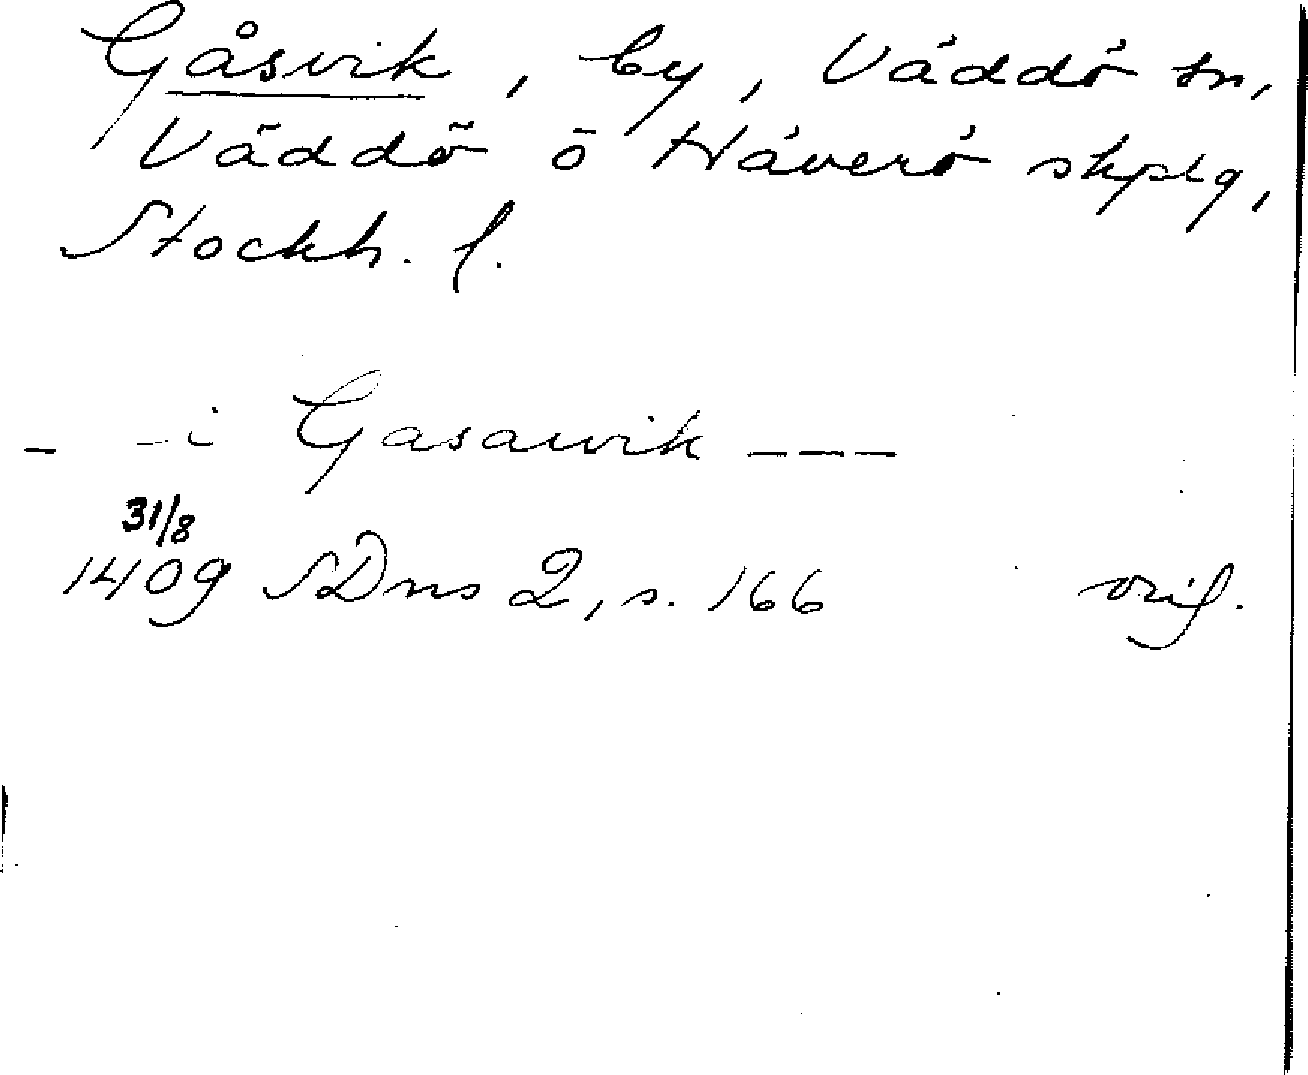 Gåsvik, by, Väddö sn,
Väddö o Häverö skplg,
Stockh. l.
- - i Gasawik - - -
31/8
1409 SDns 2, s. 166 orig.